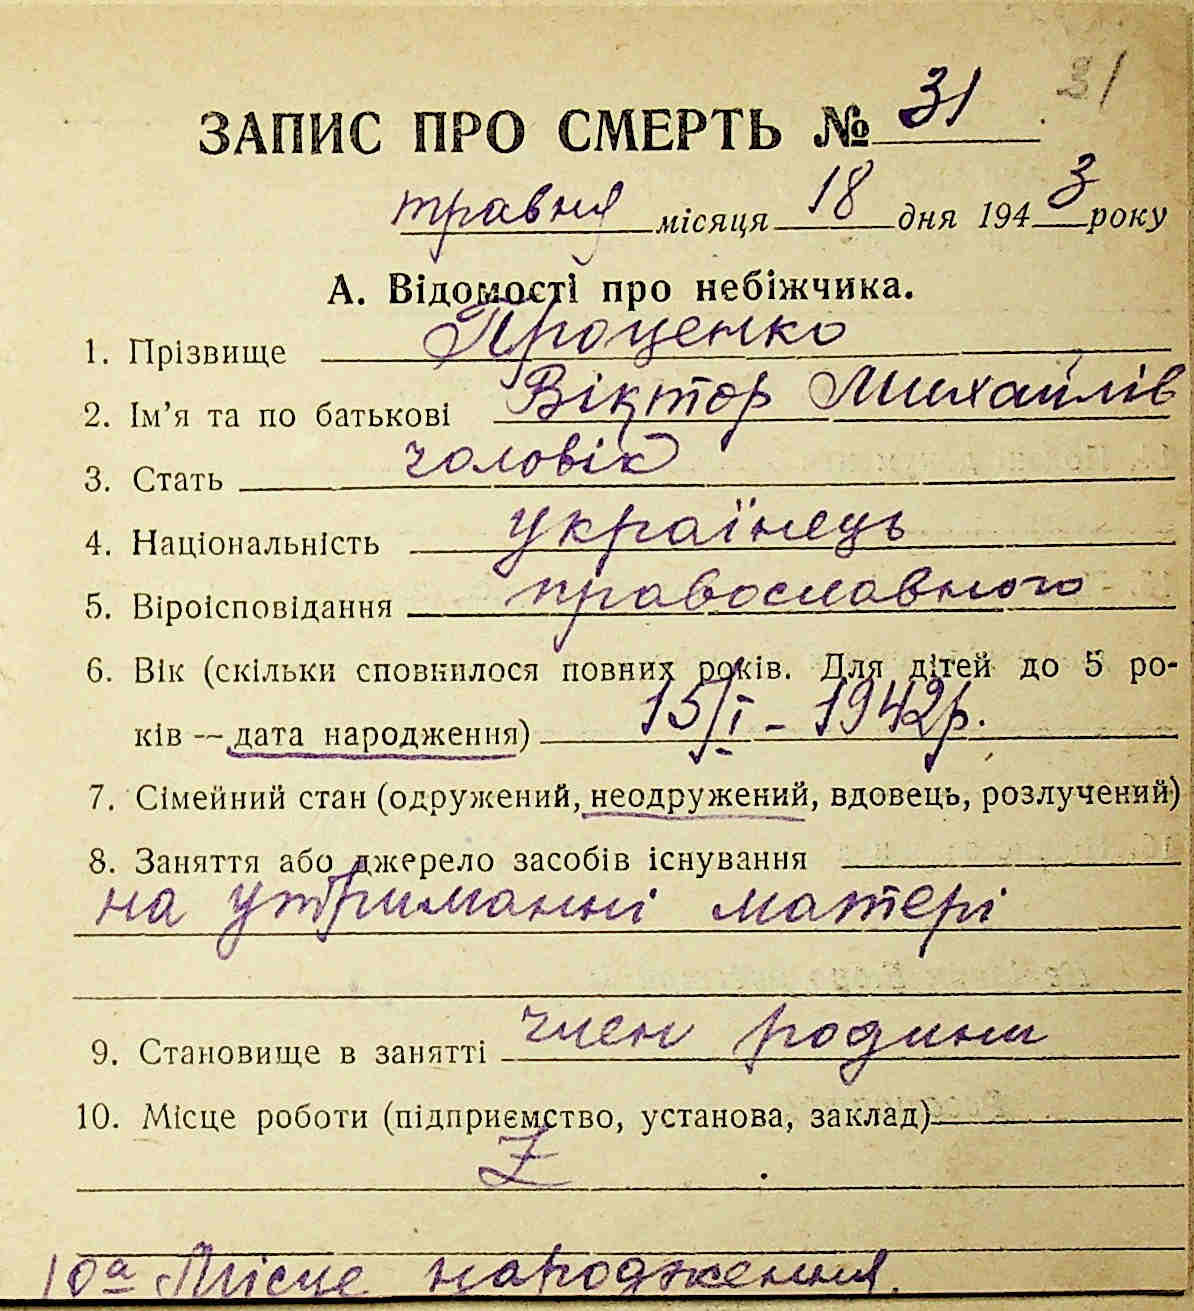 31
ЗАПИС ПРО СМЕРТЬ № 31
травня місяця 18 дня 1943 року
А. Відомості про небіжчика.
1. Прізвище Проценко
2. Ім'я та по батькові Віктор Михайлів
3. Стать чоловік
4. Національність українець
5. Віроісповідання православного
6. Вік (скільки сповнилося повних років. Для дітей до 5 ро-
ків — дата народження) 15/I - 1942р.
7. Сімейний стан (одружений, неодружений, вдовець, розлучений)
8. Заняття або джерело засобів існування
на утриманні матері
9. Становище в занятті член родини
10. Місце роботи (підприємство, установа, заклад)
Z
10а Місце народження.